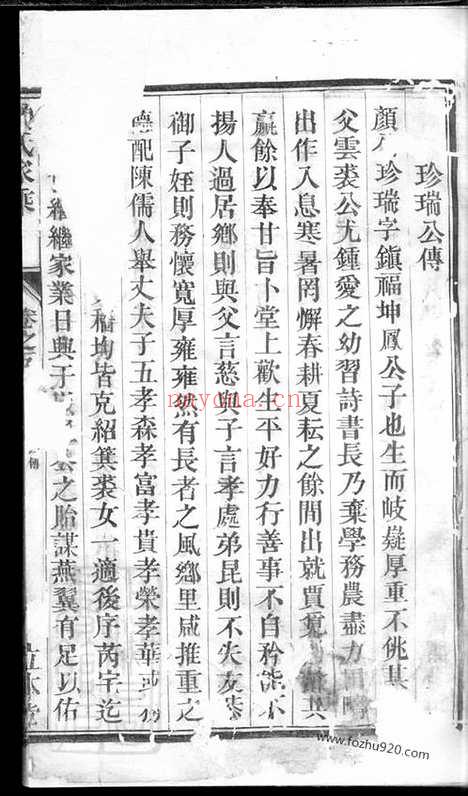 珍瑞公傳
顏 珍瑞字鎮福坤鳳公子也生而岐嶷厚重不佻其
父雲裘公尤鍾愛之幼習詩書長乃棄學務農盡力
出作入息寒暑罔懈春耕夏耘之餘間出就賈 其
贏餘以奉甘旨卜堂上歡生平好力行善事不自矜能不
揚人過居鄉則與父言慈與子言孝處弟昆則不失友恭
御子姪則務懷寬厚雍雍然有長者之風鄉里咸推重之
德配陳儒人舉丈夫子五孝森孝富孝貴孝榮孝華
皆克紹箕裘女一適後序芮宅迄
繼家業日興于 公之胎謀燕翼有足以佑
氏家乘
卷之
傳
nayona.cn
www.fozhu920.com